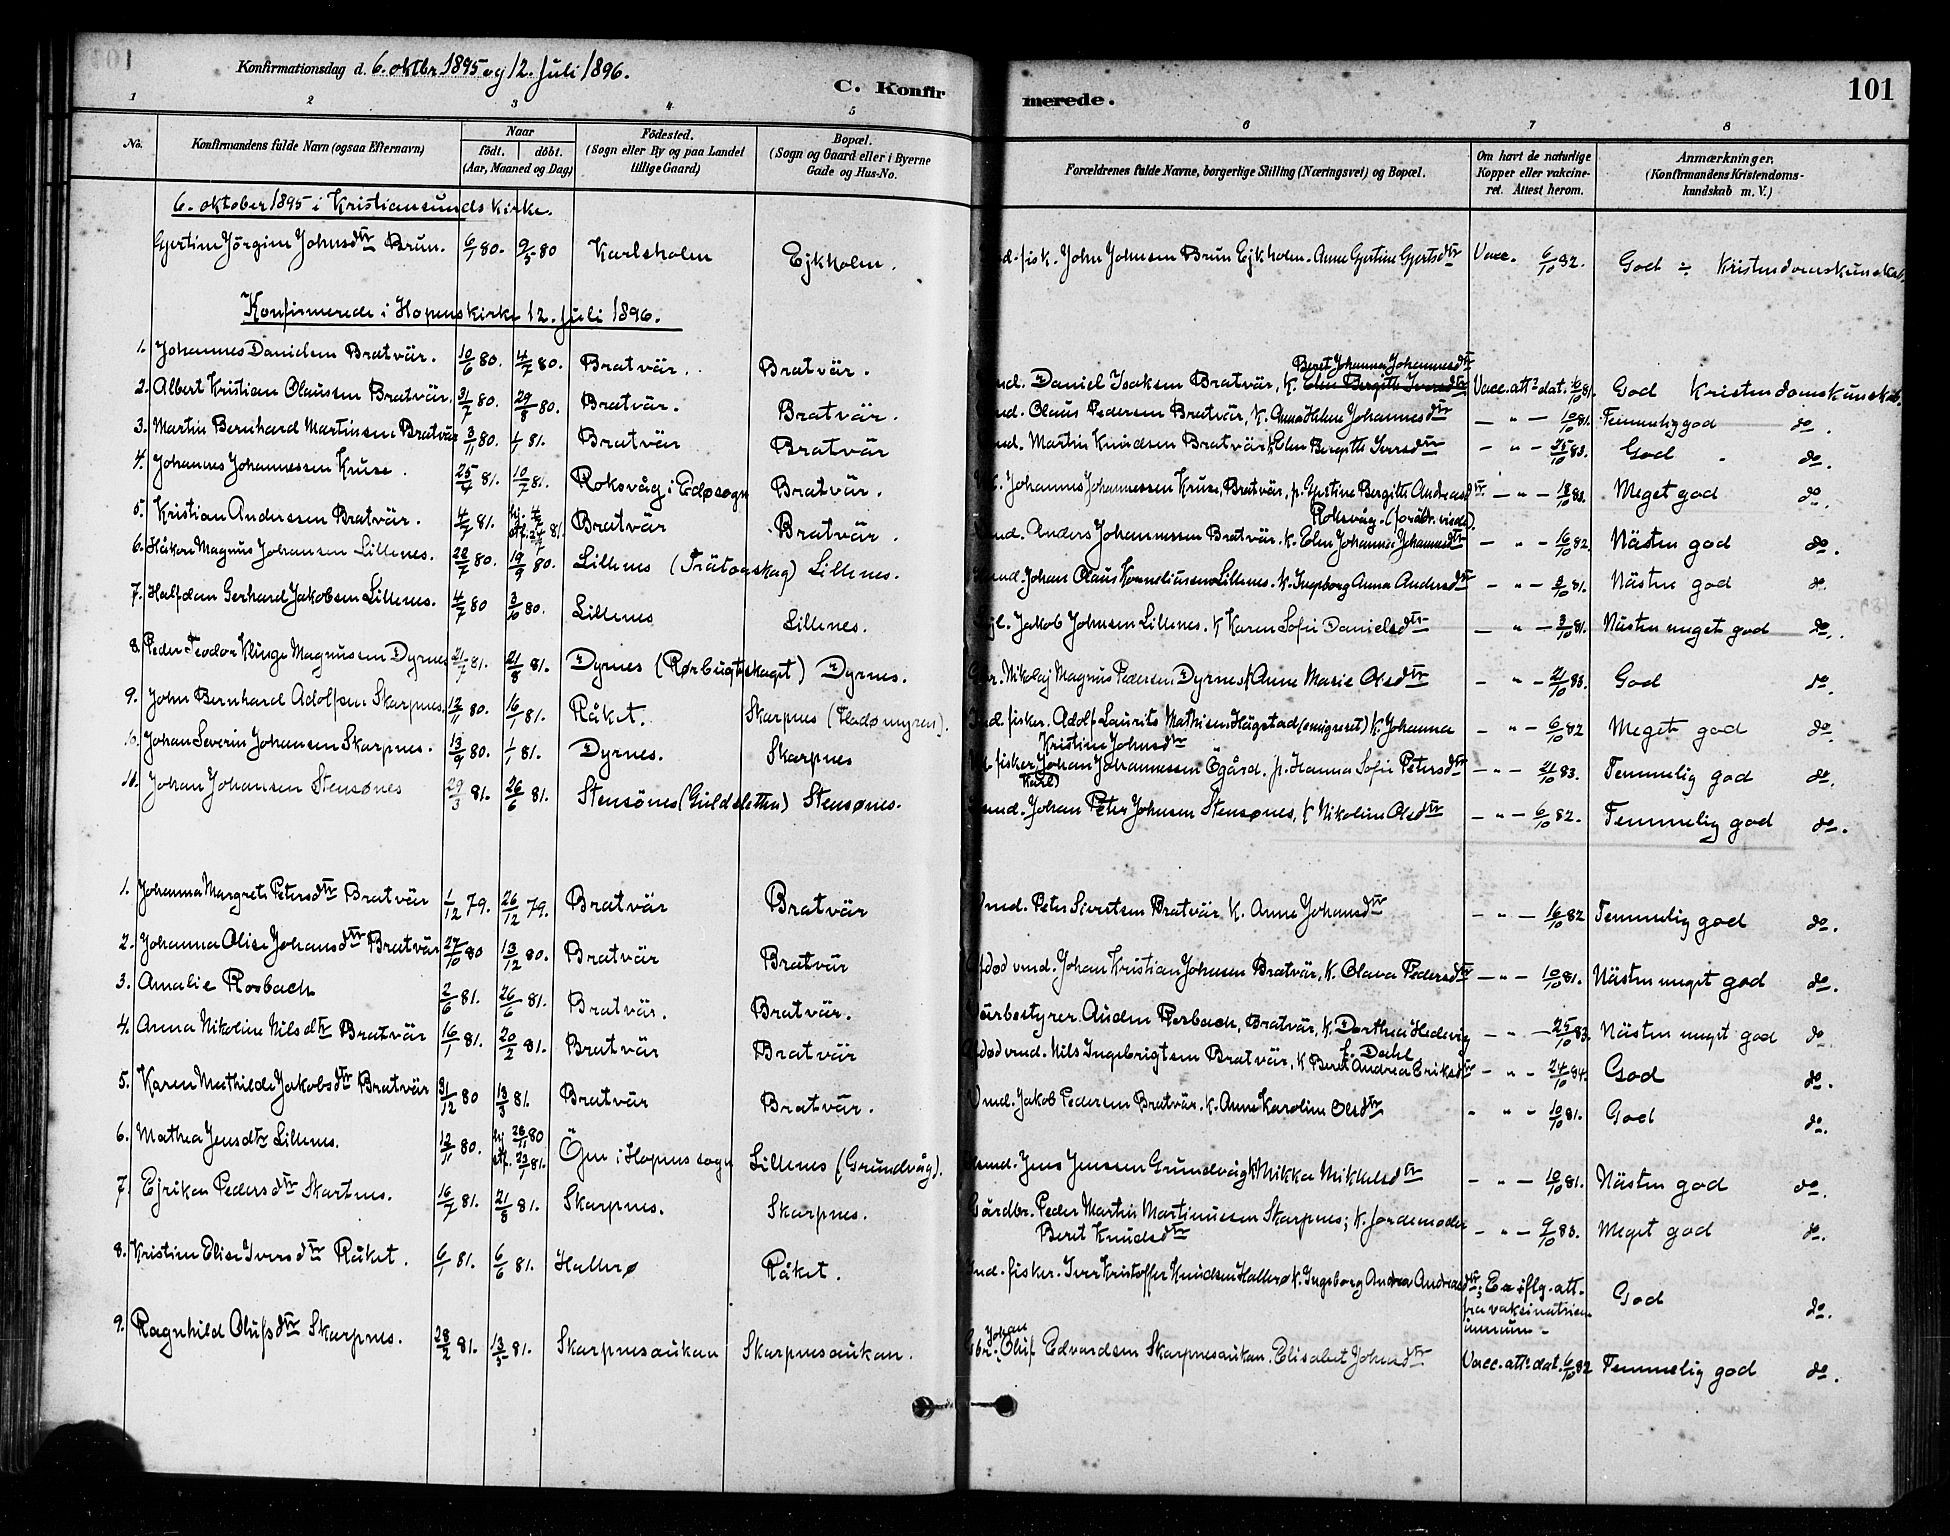 Konfirmationsdag d. 6. oktbr 1895 og 12. Juli 1896.
C. Konfirmerede.
101
1 2 3 4 5 6 7 8
No. Konfirmandens fulde Navn (ogsaa Efternavn) Naar født. døbt. (Aar, Maaned og Dag) Födested. (Sogn eller By og paa Landet tillige Gaard) Bopæl. (Sogn og Gaard eller i Byerne Gade og Hus-No. Forældrenes fulde Navne, borgerlige Stilling (Næringsvei) og Bopæl. Om havt de naturlige Kopper eller vakcineret. Attest herom. Anmærkninger. (Konfirmandens Kristendomskundskab m. V.)
6. oktober 1895 i Kristiansunds kirke.
Gjertine Jörgine Johnsdtr Brun. 6/1 80. 9/5 80 Karlsholm Ejkholm. fisk. John Johnsen Brun Ejkholm. Anne Gjertine Gjertsdtr Vacc. 6/10 82. God Kristendomskunskab.
Konfirmerede i Hopens kirke 12. Juli 1896.
1. Johannes Danielsen Bratvär. 10/6 80. 4/7 80. Bratvär. Bratvär. Daniel Isaksen Bratvär, K. Beret Johanna Johannesdtr Vacc. att. dat. 6/10 81. God Kristendomskunskab.
2. Albert Kristian Olaussen Bratvär. 31/7 80. 29/8 80. Bratvär. Bratvär. Olaus Pedersen Bratvär, K. Anna Helene Johannesdtr — " — 10/10 81. Temmelig god do.
3. Martin Bernhard Martinsen Bratvär 3/11 80. 1/1 81. Bratvär Bratvär Martin Knudsen Bratvär K Elen Bergitte Iversdtr - " - 25/10 83. God do.
4. Johannes Johannessen Kruse. 25/4 81. 10/7 81. Roksvåg i Edøsogn Bratvär. Johannes Johannessen Kruse, Bratvär, p. Gjertine Bergitte Andreasdtr Roksvåg. — " — 18/10 83. Meget god do.
5. Kristian Andersen Bratvär. 4/7 81. hj. 4/7 stf. 24/7 81. Bratvär Bratvär. Anders Johannessen Bratvär. K. Elen Johanna Johannesdtr — " — 16/10 82. Nästen god do.
6. Håkon Magnus Johansen Lillenes. 28/7 80. 19/9 80. Lillenes Lillenes. Johan Olaus Korneliussen Lillenes. K. Ingeborg Anna Andersdtr — " — 3/10 81. Nästen god do
7. Halfdan Gerhard Jakobsen Lillenes. 4/7 80 3/10 80. Lillenes Lillenes. Jakob Johnsen Lillenes. K Karen Sofie Danielsdtr — " — 3/10 81. Nästen meget god do.
8. Peder Teodor Klinge Magnussen Dyrnes 21/7 81. 21/8 81. Dyrnes (Rørbugtskaget) Dyrnes. Nikolaj Magnus Pedersen Dyrnes K Anne Marie Olsdtr — " — 21/10 83. God do.
9. John Bernhard Adolfsen Skarpnes. 12/11 80. 16/1 81. Råket. Skarpnes (Fladømyren). fisker. Adolf Laurits Mathisen Hågstad (emigreret) K. Johanna Kristine Johnsdtr — " — 6/10 82 Meget god do.
10. Johan Severin Johansen Skarpnes. 13/9 80. 1/1 81. Dyrnes. Skarpnes fisker Johan Johannessen Ögård. p. Hanna Sofie Petersdtr — " — 21/10 83. Temmelig god do.
11. Johan Johansen Stensønes 29/3 81. 26/6 81. Stensönes (Guldsletten) Stensønes. Johan Peter Johnsen Stensønes, K Nikoline Olsdtr — " — 6/10 82. Temmelig god do.
1. Johanna Margrete Petersdtr Bratvär 1/12 79. 26/12 79. Bratvär Bratvär Peter Sivertsen Bratvär K. Anne Johansdtr — " — 16/10 82 Temmelig god do.
2. Johanna Olise Johansdtr Bratvär 27/10 80 13/12 80. Bratvär Bratvär Afdød vmd. Johan Kristian Johnsen Bratvär, K. Olava Pedersdtr — " — 10/10 81. Nästen meget god do.
3. Amalie Rosbach 2/6 81. 26/6 81. Bratvär. Bratvär. Värbestyrer Auden Rosbach, Bratvär, K. Dorthea Hedevig f. Dahl — " — 25/10 83. Nästen meget god do
4. Anna Nikoline Nilsdtr Bratvär 16/1 81. 20/2 81. Bratvär Bratvär Afdød vmd. Nils Ingebrigtsen Bratvär, K Beret Andrea Eriksdtr - " - 24/10 84. God do.
5. Karen Mathilde Jakobsdtr Bratvär 31/12 80 13/3 81. Bratvär Bratvär. Vmd. Jakob Pedersen Bratvär. K. Anne Karoline Olsdtr " " - 10/10 81. God do.
6. Mathea Jensdtr Lillenes. 12/11 80. hj 28/11 80 stf. 23/7 81. Öjen i Hopens sogn Lillenes (Grundvåg). Jens Jenssen Grundvåg K Mikka Mikkelsdtr - " - 10/10 81. Nästen god do.
7. Ejrikka Pedersdtr Skartnes. 16/7 81. 21/8 81. Skarpnes. Skarpnes. Gårdbr. Peder Martin Martinussen Skarpnes; K. Jordemoder Berit Knudsdtr - " - 9/10 83. Meget god do.
8. Kristine Elise Iversdtr Råket. 6/1 81. 6/6 81. Hallerø Råket. fisker. Iver Kristoffer Knudsen Hallerø K. Ingeborg Andrea Andreasdtr; Er iflg. att. fra vaksinatricen immun - God do.
9. Ragnhild Olufsdtr Skarpnes. 28/2 81. 13/5 81. Skarpnesaukan Skarpnesaukan. Gbr. Johan Oluf Edvardsen Skarpnesaukan. Elisabet Johnsdtr Vacc. att. dat. 6/10 82 Temmelig god do.